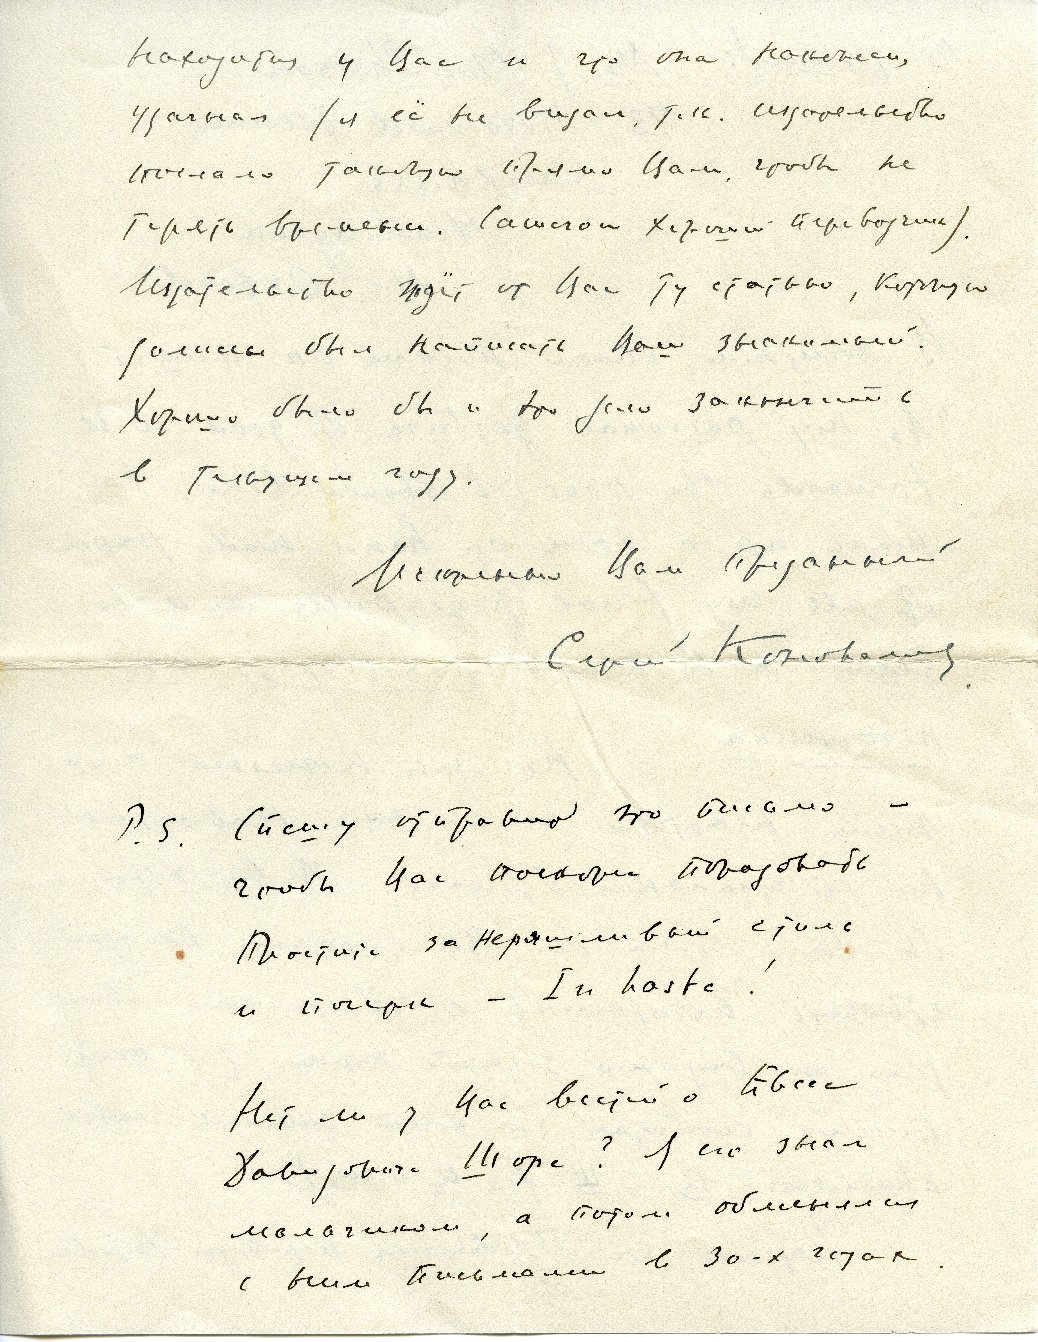 находится у Вас и что она наконец,
удачная (я её не видал, т.к. издательство
послало таковую прямо Вам, чтобы не
терять времени. Самсон хороший переводчик).
Издательство ждёт от Вас ту статью, которую
должен был написать Ваш знакомый.
Хорошо было бы и это дело закончить
в текущем году.
Искренно Вам преданный
Сергей Коновалов.
P.S. Спешу отправить это письмо –
чтобы Вас поскорее порадовать
Простите за неряшливый стиль
и почерк – In haste!
Нет ли у Вас вестей о
Давидовиче Шоре? Я его знал
мальчиком, а потом обменялся
с ним письмами в 30-х годах.